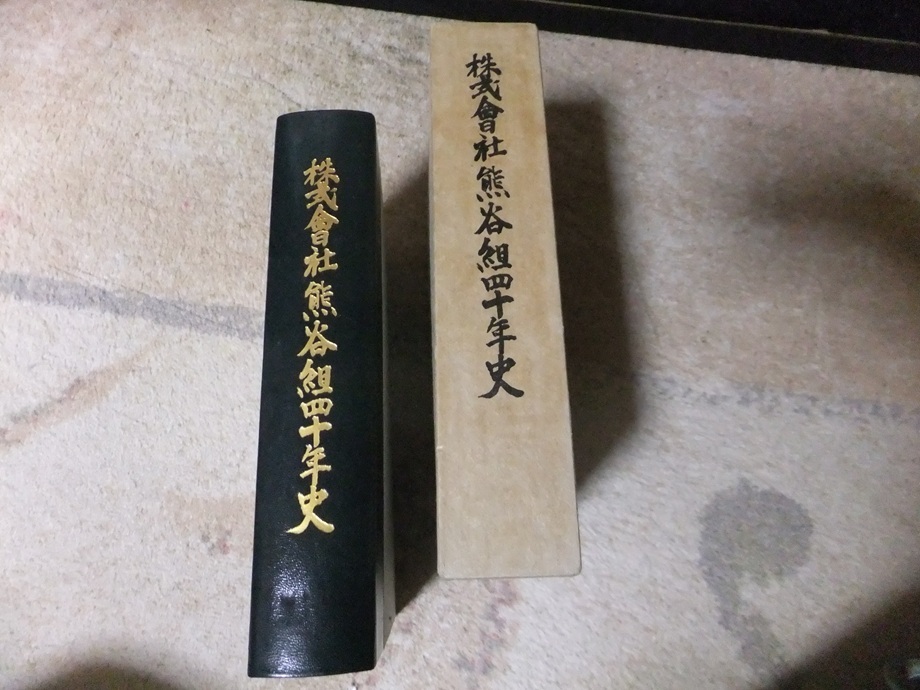 株式會社熊谷組四十年史
株式會社熊谷組四十年史